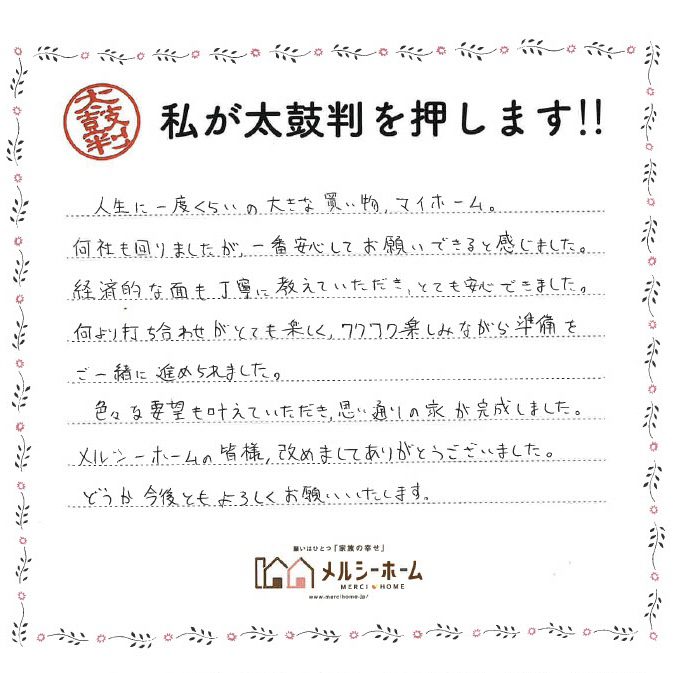 太鼓判
私が太鼓判を押します!!
人生に一度くらいの大きな買い物,マイホーム。
何社も回りましたが,一番安心してお願いできると感じました。
経済的な面も丁寧に教えていただき,とても安心できました。
何より打ち合わせがとても楽しく,ワクワク楽しみながら準備を
ご一緒に進められました。
色々な要望も叶えていただき,思い通りの家が完成しました。
メルシーホームの皆様,改めましてありがとうございました。
どうか今後ともよろしくお願いいたします。
願いはひとつ「家族の幸せ」
メルシーホーム
MERCI HOME
www.mercihome.jp/